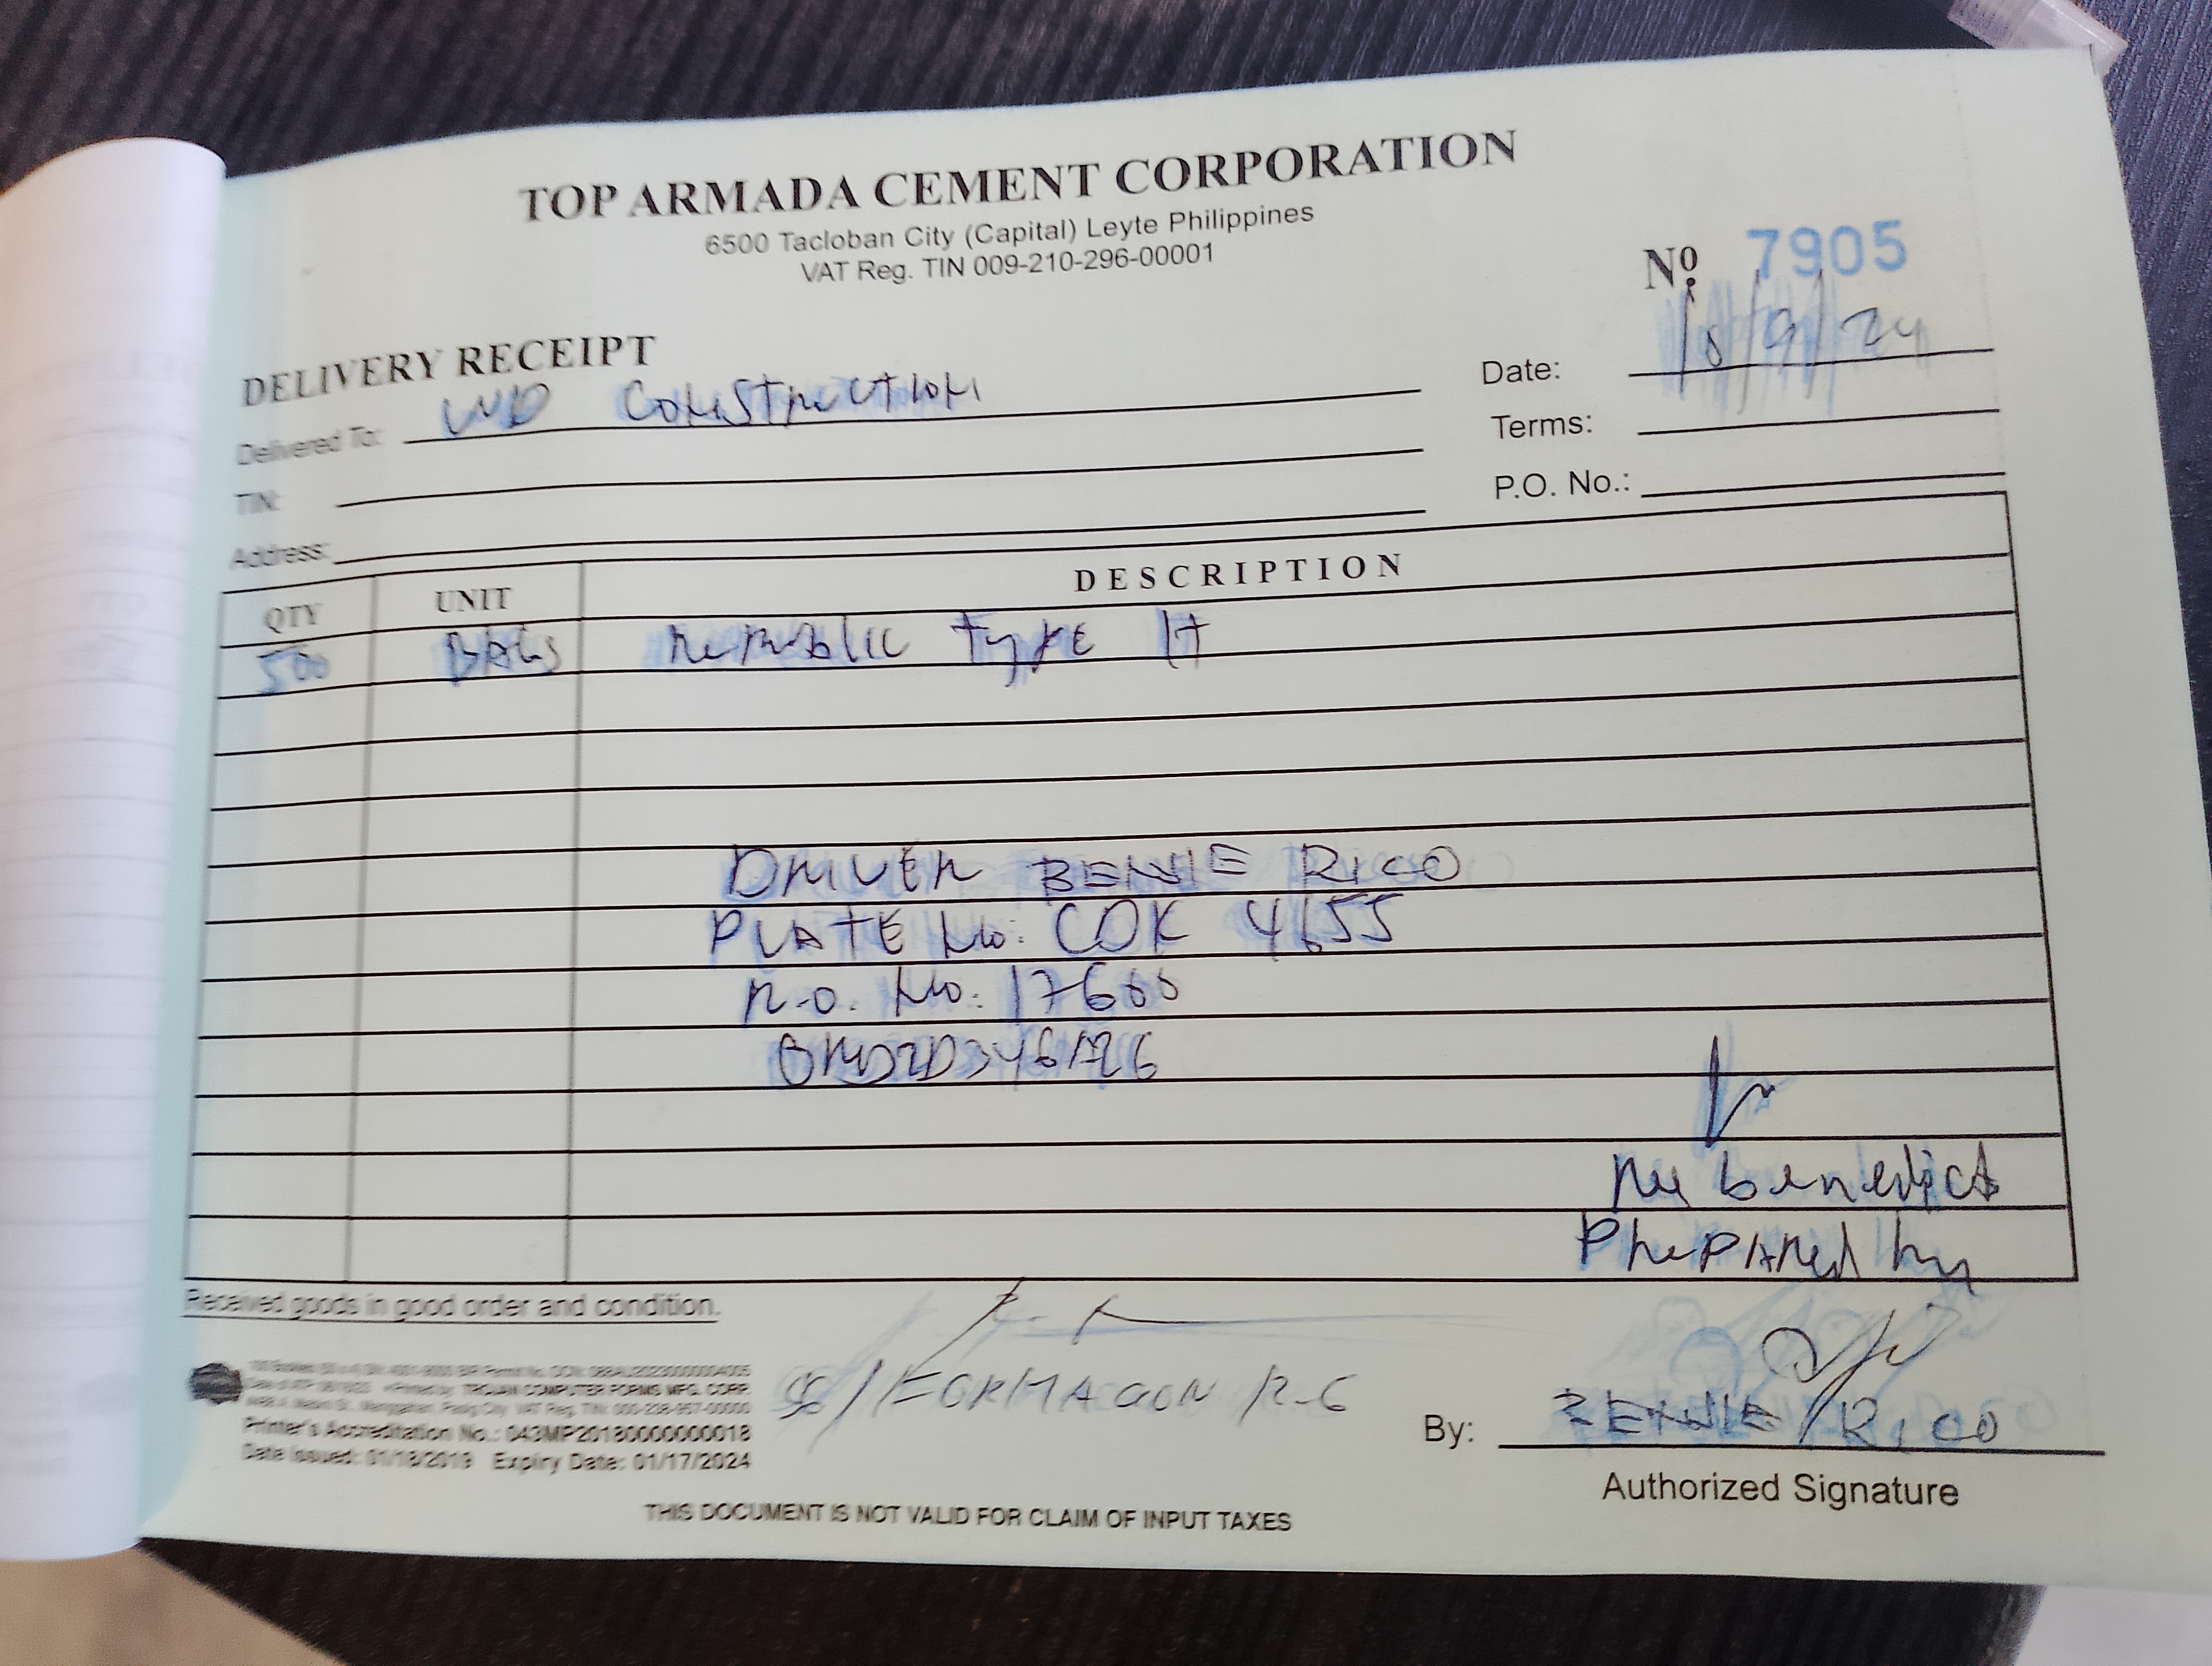 TOP ARMADA CEMENT CORPORATION
6500 Tacloban City (Capital) Leyte Philippines
VAT Reg. TIN 009-210-296-00001
Nº 7905
DELIVERY RECEIPT
Date: 10/9/24
Delivered To: WD CONSTRUCTION
Terms:
TIN:
P.O. No.:
Address:
QTY UNIT DESCRIPTION
500 BAGS Republic Type 1T
DRIVER BENNIE RICO
PLATE No: COK 4655
R.O. No: 17600
Benedict
Prepared by
Received goods in good order and condition.
TROJAN COMPUTER FORMS MFG. CORP.
Printer's Accreditation No.: 043MP20180000000018
Date Issued: 01/18/2019 Expiry Date: 01/17/2024
SG/FORMAGON R-C
By: BENNIE/RICO
Authorized Signature
THIS DOCUMENT IS NOT VALID FOR CLAIM OF INPUT TAXES